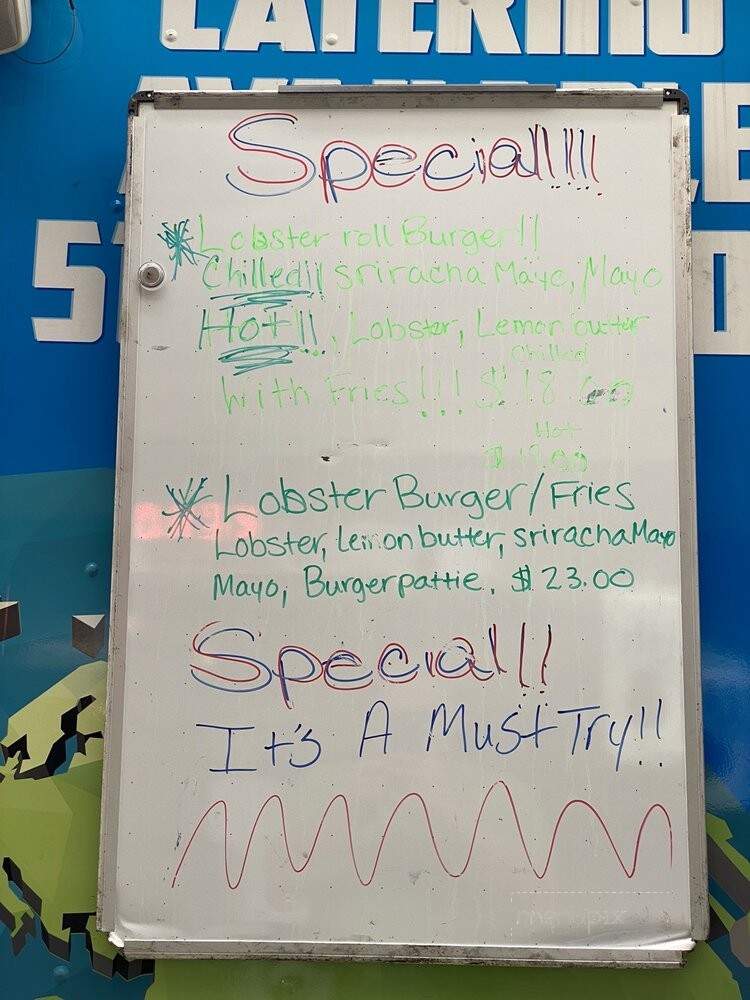 CATERING
AVAILABLE
Special!!!!
Lobster roll Burger!!
Chilled!! sriracha Mayo, Mayo
Hot!!, Lobster, Lemon butter
Chilled
with Fries!!! $18.00
Hot
Lobster Burger/Fries
Lobster, lemon butter, sriracha Mayo
Mayo, Burger pattie. $23.00
Special!!
It's A Must Try!!